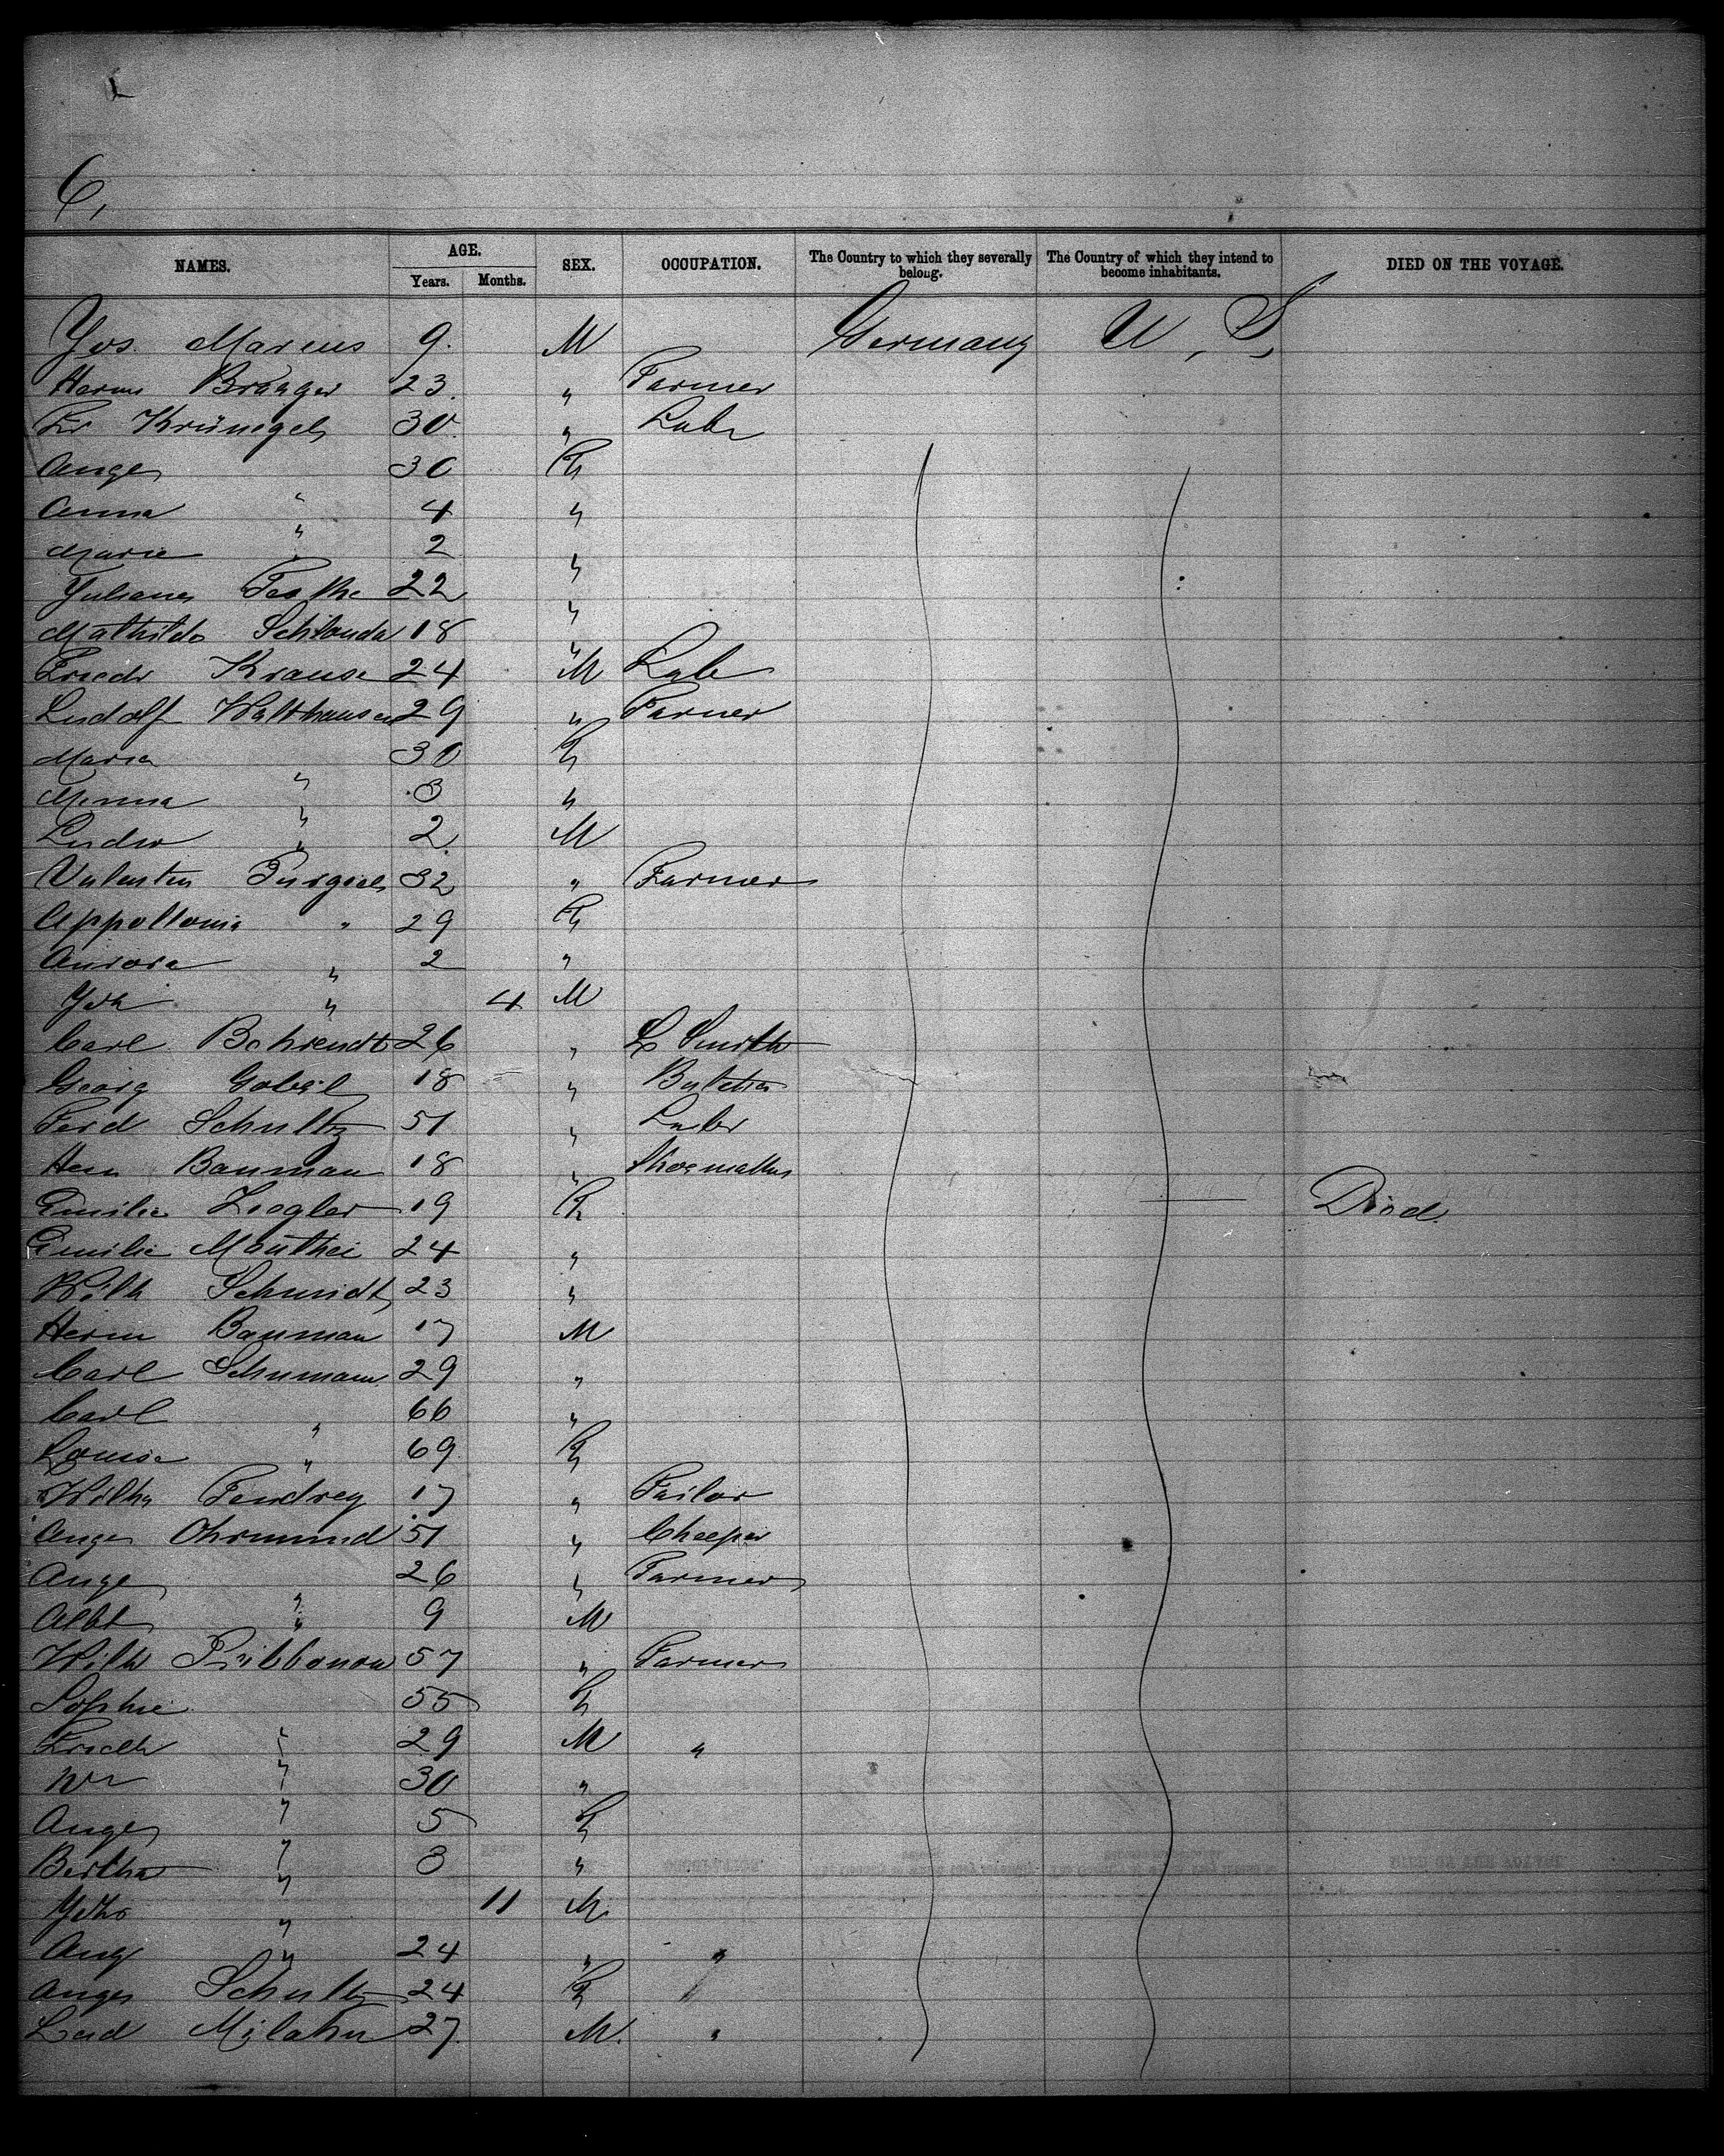 6,
NAMES. AGE. SEX. OCCUPATION. The Country to which they severally belong. The Country of which they intend to become inhabitants. DIED ON THE VOYAGE.
Years. Months.
Jos. Marcus 9. M Germany U, S,
Herm 23. " Farmer
Fr Krünegel 30. " Labr
30 F
Anna " 4 "
Marie " 2 "
22 "
Mathilde 18 "
Friedr Krause 24 M Lab
Ludolf Walthausen 29 " Farmer
Maria 30 F
Minna " 3 "
Ludw " 2 M
Valentin 32 " Farmer
Appollonia " 29 F
Aurora " 2 "
Joh " 4 M
Carl Behrendt 26 " Smith
Georg 18 " Butcher
Ferd Schultz 51 " Labr
Herm Bauman 18 " Shoemaker
Emilie Ziegler 19 F Died.
Emilie Manthei 24 "
Wilh Schmidt 23 "
Herm Bauman 17 M
Carl Schumann 29 "
Carl " 66 "
Louise " 69 F
Wilh 17 " Tailor
Ohrmund 51 "
26 " Farmer
Albt " 9 M
Wilh Pribbenow 57 " Farmer
Sophie 55 F
Friedr " 29 M "
Wm " 30 "
" 5 F
Bertha " 3 "
Joh " 11 M
Aug " 24 " "
Schultz 24 F
Milahn 27 M. "